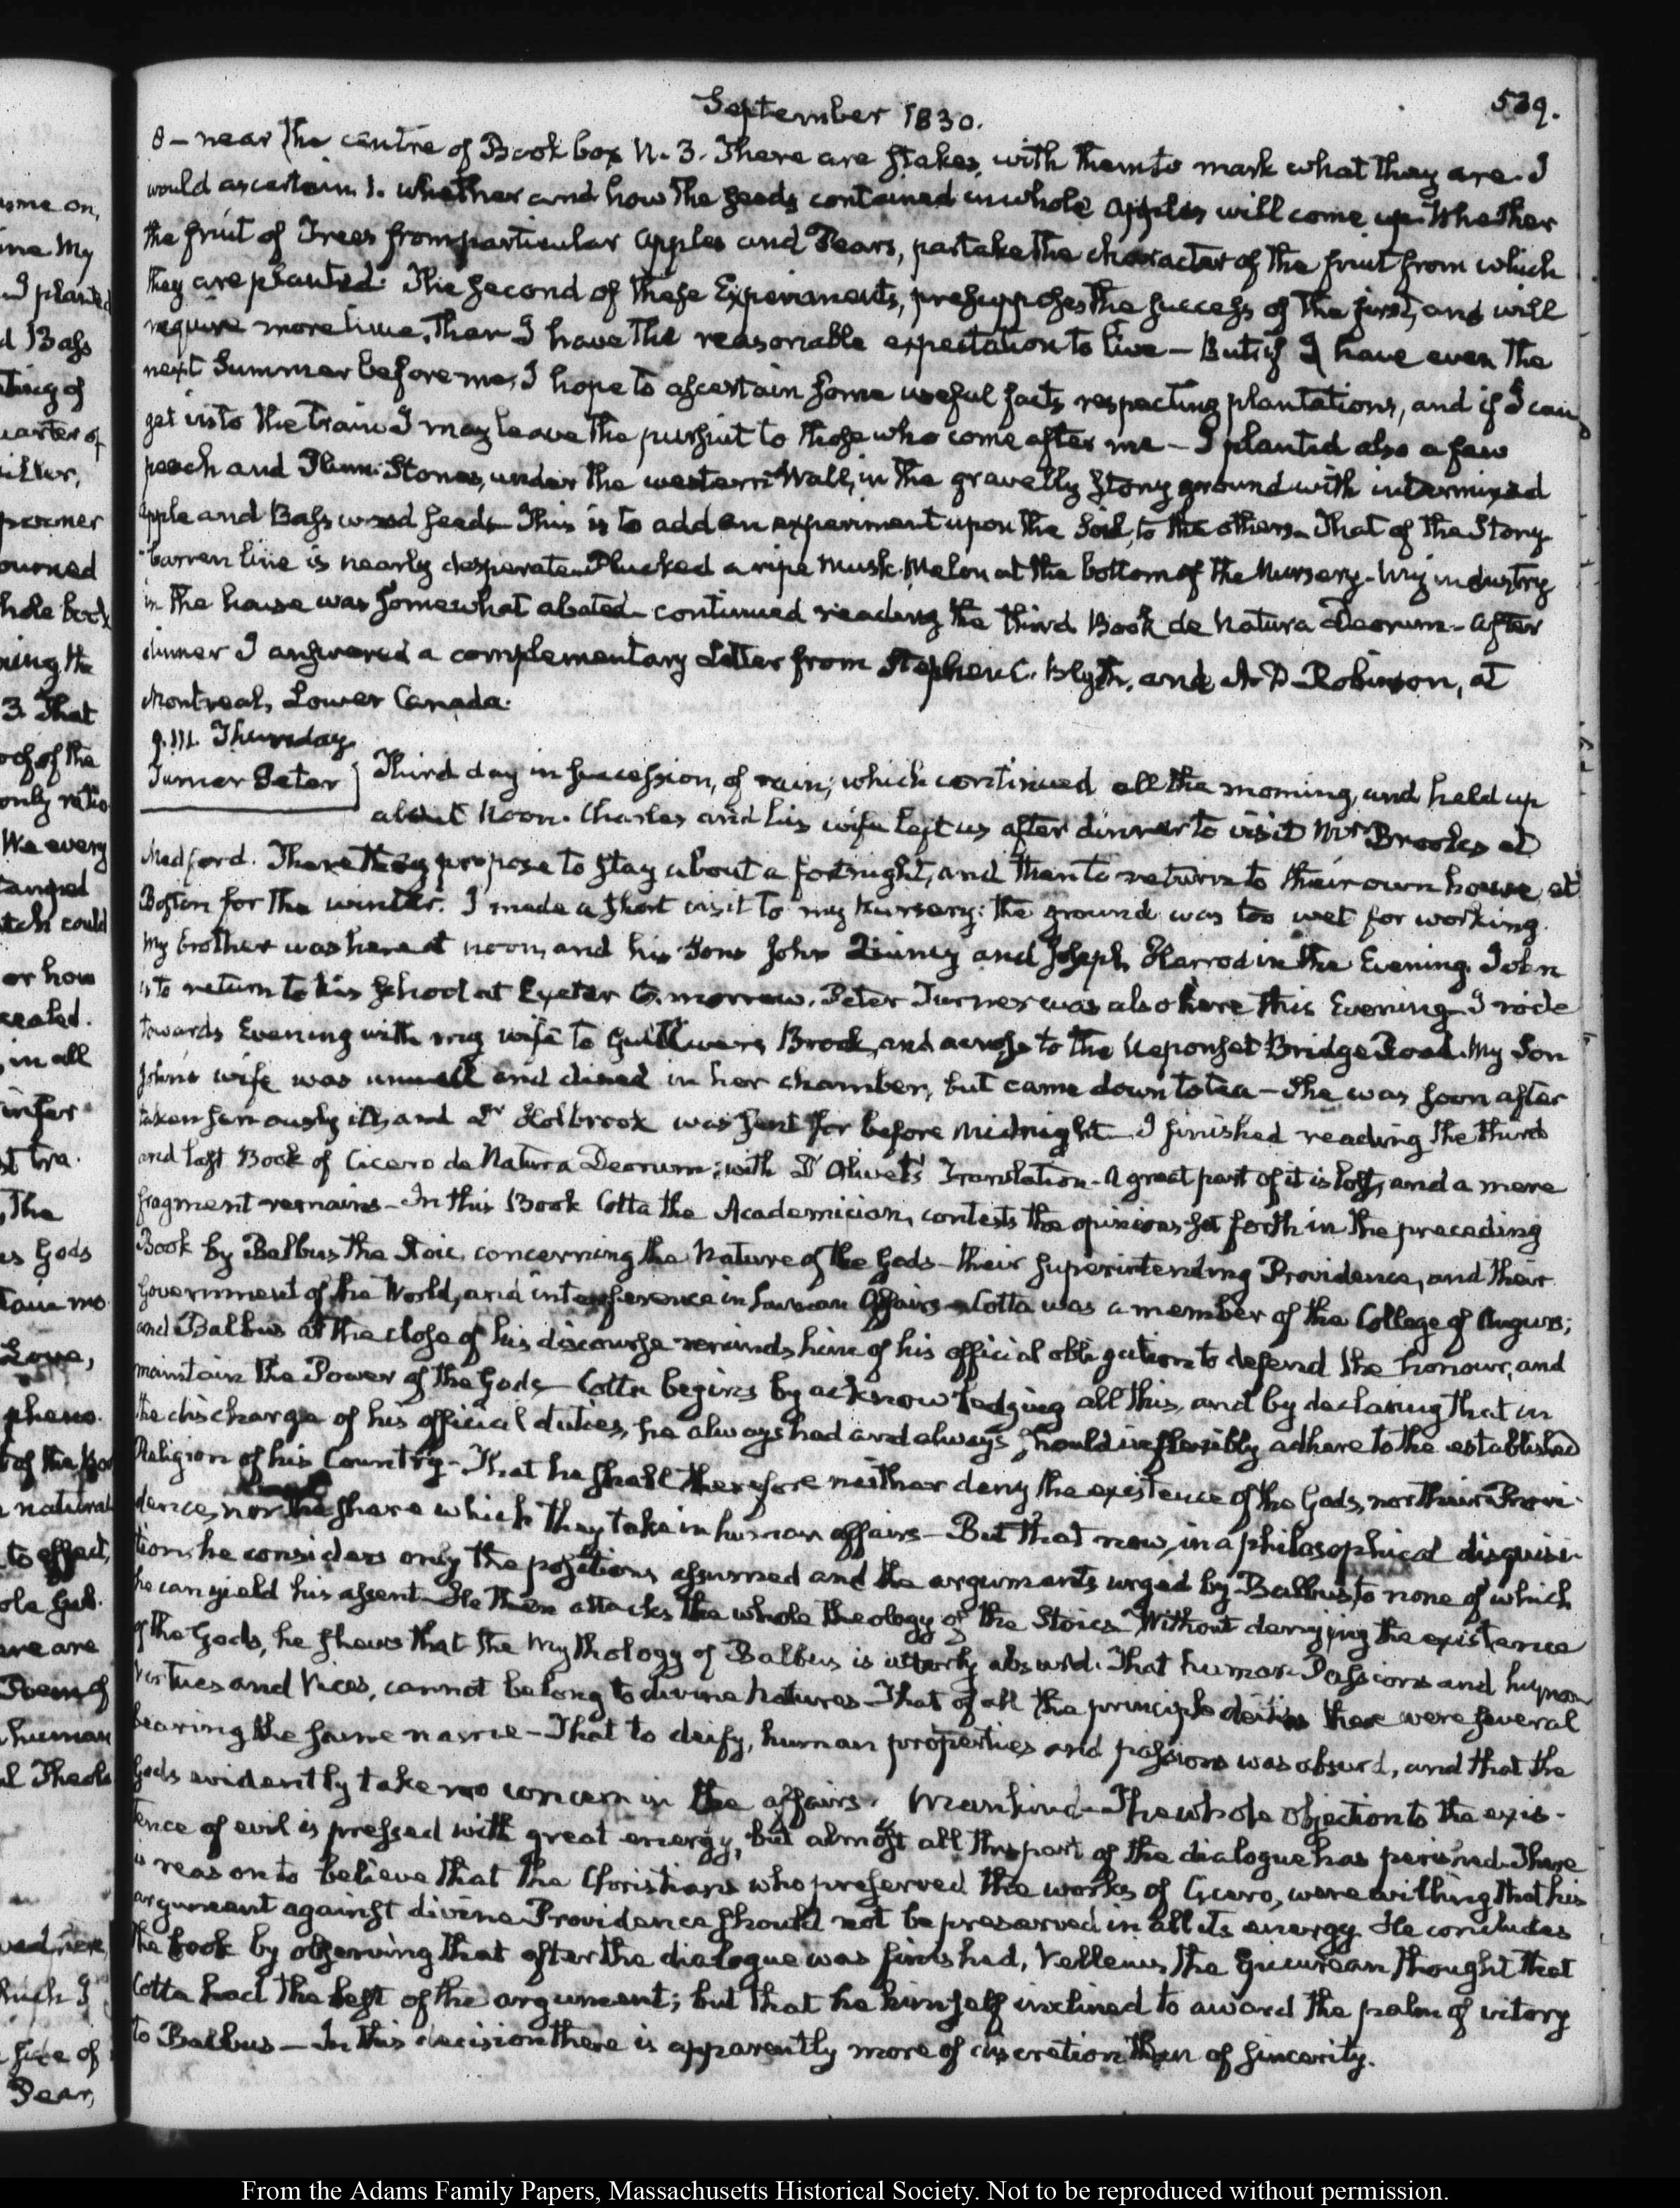 September 1830.
539.
8 – near the centre of Book box N. 3. There are stakes, with them to mark what they are. I
would ascertain 1. whether and how the seeds contained in whole apples will come up. Whether
the fruit of Trees from particular apples and Pears, partake the character of the fruit from which
they are planted. The second of these Experiments, presupposes the success of the first, and will
require more time, than I have the reasonable expectation to live – But if I have even the
next Summer before me, I hope to ascertain some useful facts respecting plantations, and if I can
get into the train I may leave the pursuit to those who come after me – I planted also a few
peach and Plum Stones, under the western Wall, in the gravelly stony ground with intermixed
apple and Bass wood seeds – This is to add an experiment upon the soil, to the others – That of the Stony
barren line is nearly desperate – Plucked a ripe Musk-Melon at the bottom of the Nursery – My industry
in the house was somewhat abated – continued reading the third Book de Natura Deorum – After
dinner I answered a complementary Letter from Stephen C. Blyth, and A. D. Robinson, at
Montreal, Lower Canada.
9. III. Thursday
Turner Peter
Third day in succession, of rain; which continued all the morning, and held up
about Noon. Charles and his wife left us after dinner to visit Mrs. Brooks at
Medford. There they propose to stay about a fortnight, and then to return to their own house, at
Boston for the winter. I made a short visit to my Nursery: the ground was too wet for working.
My brother was here at noon, and his Sons John Quincy and Joseph Harrod in the Evening. John
is to return to his School at Exeter to-morrow. Peter Turner was also here this Evening – I rode
towards Evening with my wife to Gulliver's Brook, and across to the Neponset Bridge Road. My Son
John's wife was unwell and dined in her chamber, but came down to tea – She was soon after
taken seriously ill, and Dr. Holbrook was sent for before Midnight – I finished reading the third
and last Book of Cicero de Natura Deorum; with D'Olivet's Translation – A great part of it is lost, and a mere
fragment remains – In this Book Cotta the Academician, contests the opinions set forth in the preceding
Book by Balbus the Stoic, concerning the Nature of the Gods – their superintending Providence, and their
Government of the World, and interference in human Affairs – Cotta was a member of the College of Augurs;
and Balbus at the close of his discourse reminds him of his official obligation to defend the honour, and
maintain the Power of the Gods – Cotta begins by acknowledging all this, and by declaring that in
the discharge of his official duties, he always had and always should inflexibly adhere to the established
Religion of his Country – That he shall therefore neither deny the existence of the Gods, nor their Provi-
dence, nor the share which they take in human affairs – But that now, in a philosophical disquisi-
tion, he considers only the positions assumed and the arguments urged by Balbus, to none of which
he can yield his assent – He then attacks the whole theology of the Stoics – Without denying the existence
of the Gods, he shews that the Mythology of Balbus is utterly absurd. That human Passions and human
Virtues and Vices, cannot belong to divine Natures – That of all the principle deities there were several
bearing the same name – That to deify, human properties and passions was absurd, and that the
Gods evidently take no concern in the affairs Mankind – The whole objection to the exis-
tence of evil is pressed with great energy, but almost all this part of the dialogue has perished. There
is reason to believe that the Christians who preserved the works of Cicero, were willing that his
argument against divine Providence should not be preserved in all its energy. He concludes
the book by observing that after the dialogue was finished, Velleius, the Epicurean thought that
Cotta had the best of the argument; but that he himself inclined to award the palm of vitory
to Balbus – In this decision there is apparently more of discretion than of sincerity.
From the Adams Family Papers, Massachusetts Historical Society. Not to be reproduced without permission.